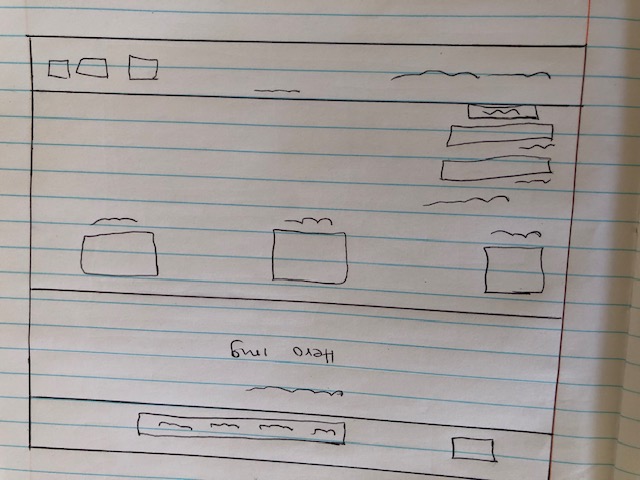 Hero img